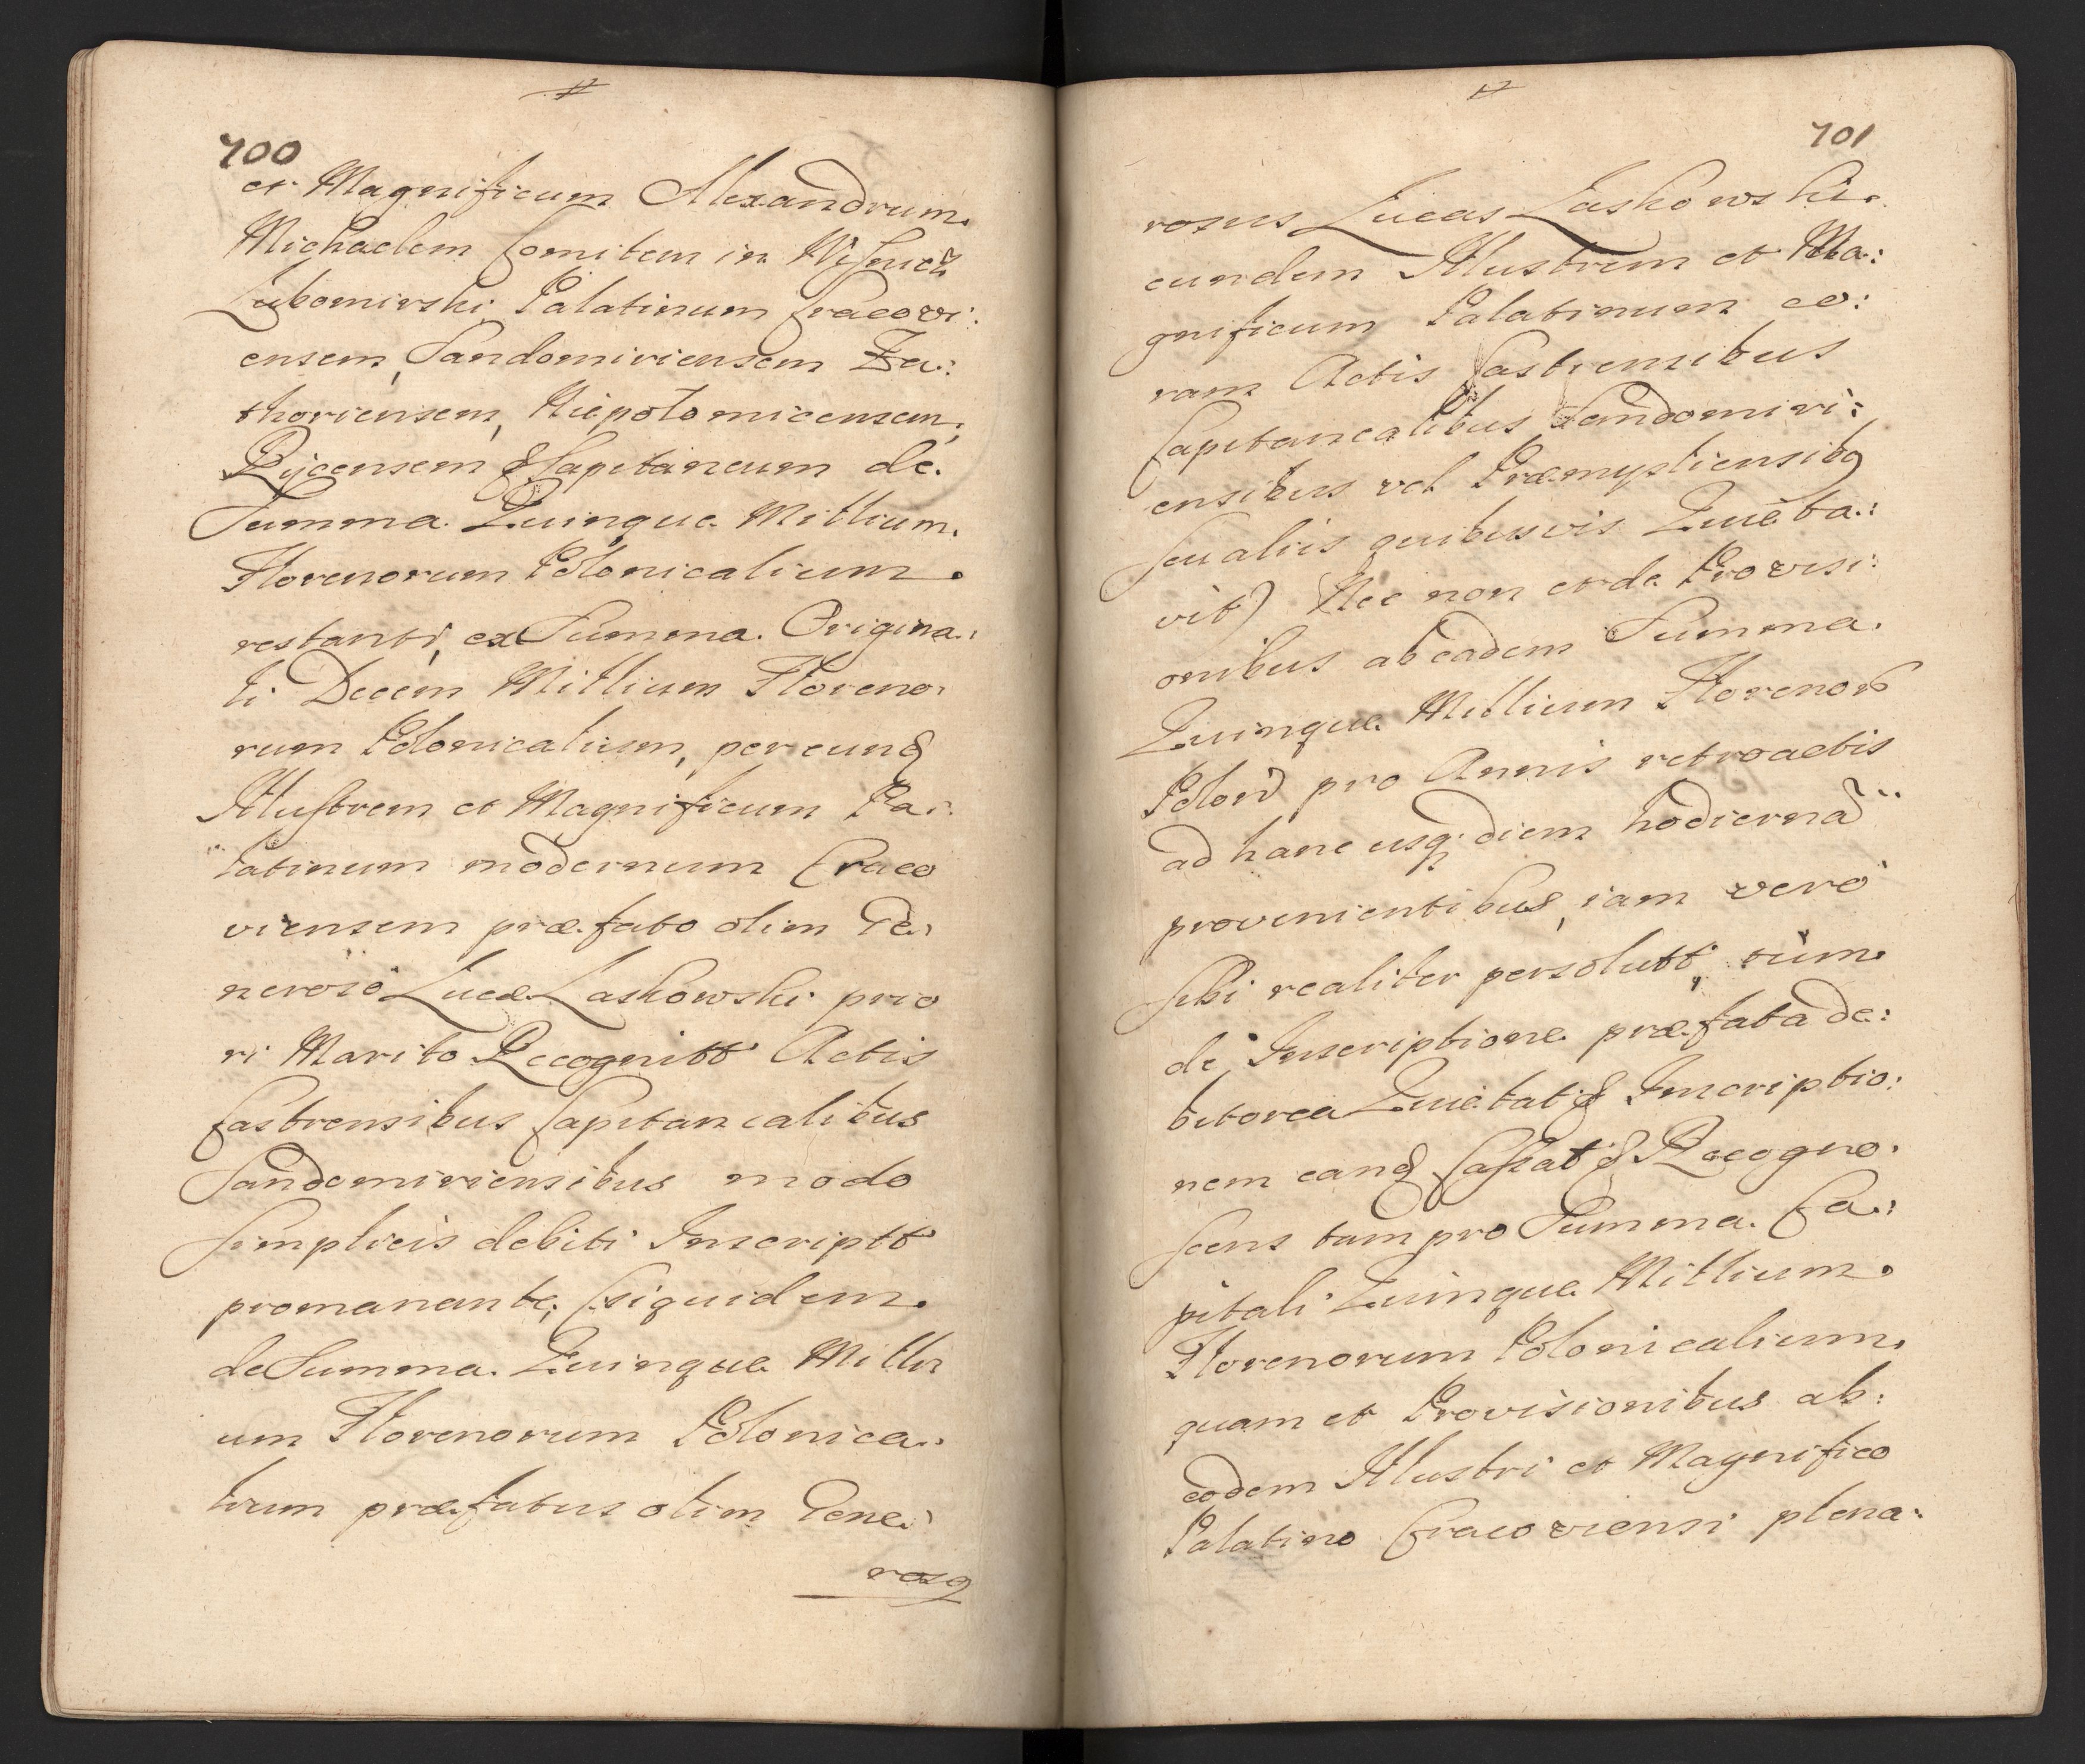 700
et Magnificum Alexandrum
Michaelem Comitem in Wisnicz
Lubomirski Palatinum Cracovi:
ensem, Sandomiriensem Za:
thoriensem, Niepolomicensem,
Rycensem & Capitaneum de
Summa Quinque Millium
Florenorum Polonicalium
restanti, ex Summa Origina:
li Decem Millium Floreno:
rum Polonicalium, per eund
Illustrem et Magnificum Pa:
latinum modernum Craco
viensem præfato olim Ge:
neroso Lucæ Laskowski prio
ri Marito Recognitt Actis
Castrensibus Capitanealibus
Sandomiriensibus modo
Simplicis debiti Inscriptt
promanante, (siquidem
de Summa Quinque Milli
um Florenorum Polonica:
lium præfatus olim Gene:
rosq
701
rosus Lucas Laskowski
eundem Illustrem et Ma:
gnificum Palatinum co:
ram Actis Castrensibus
Capitanealibus Sandomiri:
ensibus vel Præmysliensibq
seu aliis quibusvis Quieta:
vit) Nec non et de Provisi:
onibus ab eadem Summa
Quinque Millium Florenor
Polon pro Annis retroactis
ad hanc usq diem hodierna
provenientibus, iam vero
sibi realiter persolutt, tum
de Inscriptione præfata de:
bitorea Quietat & Inscriptio:
nem eand Cassat & Recogno:
scens tam pro Summa Ca:
pitali Quinque Millium
Florenorum Polonicalium
quam et Provisionibus ab:
eodem Illustri et Magnifico
Palatino Cracoviensi plena: